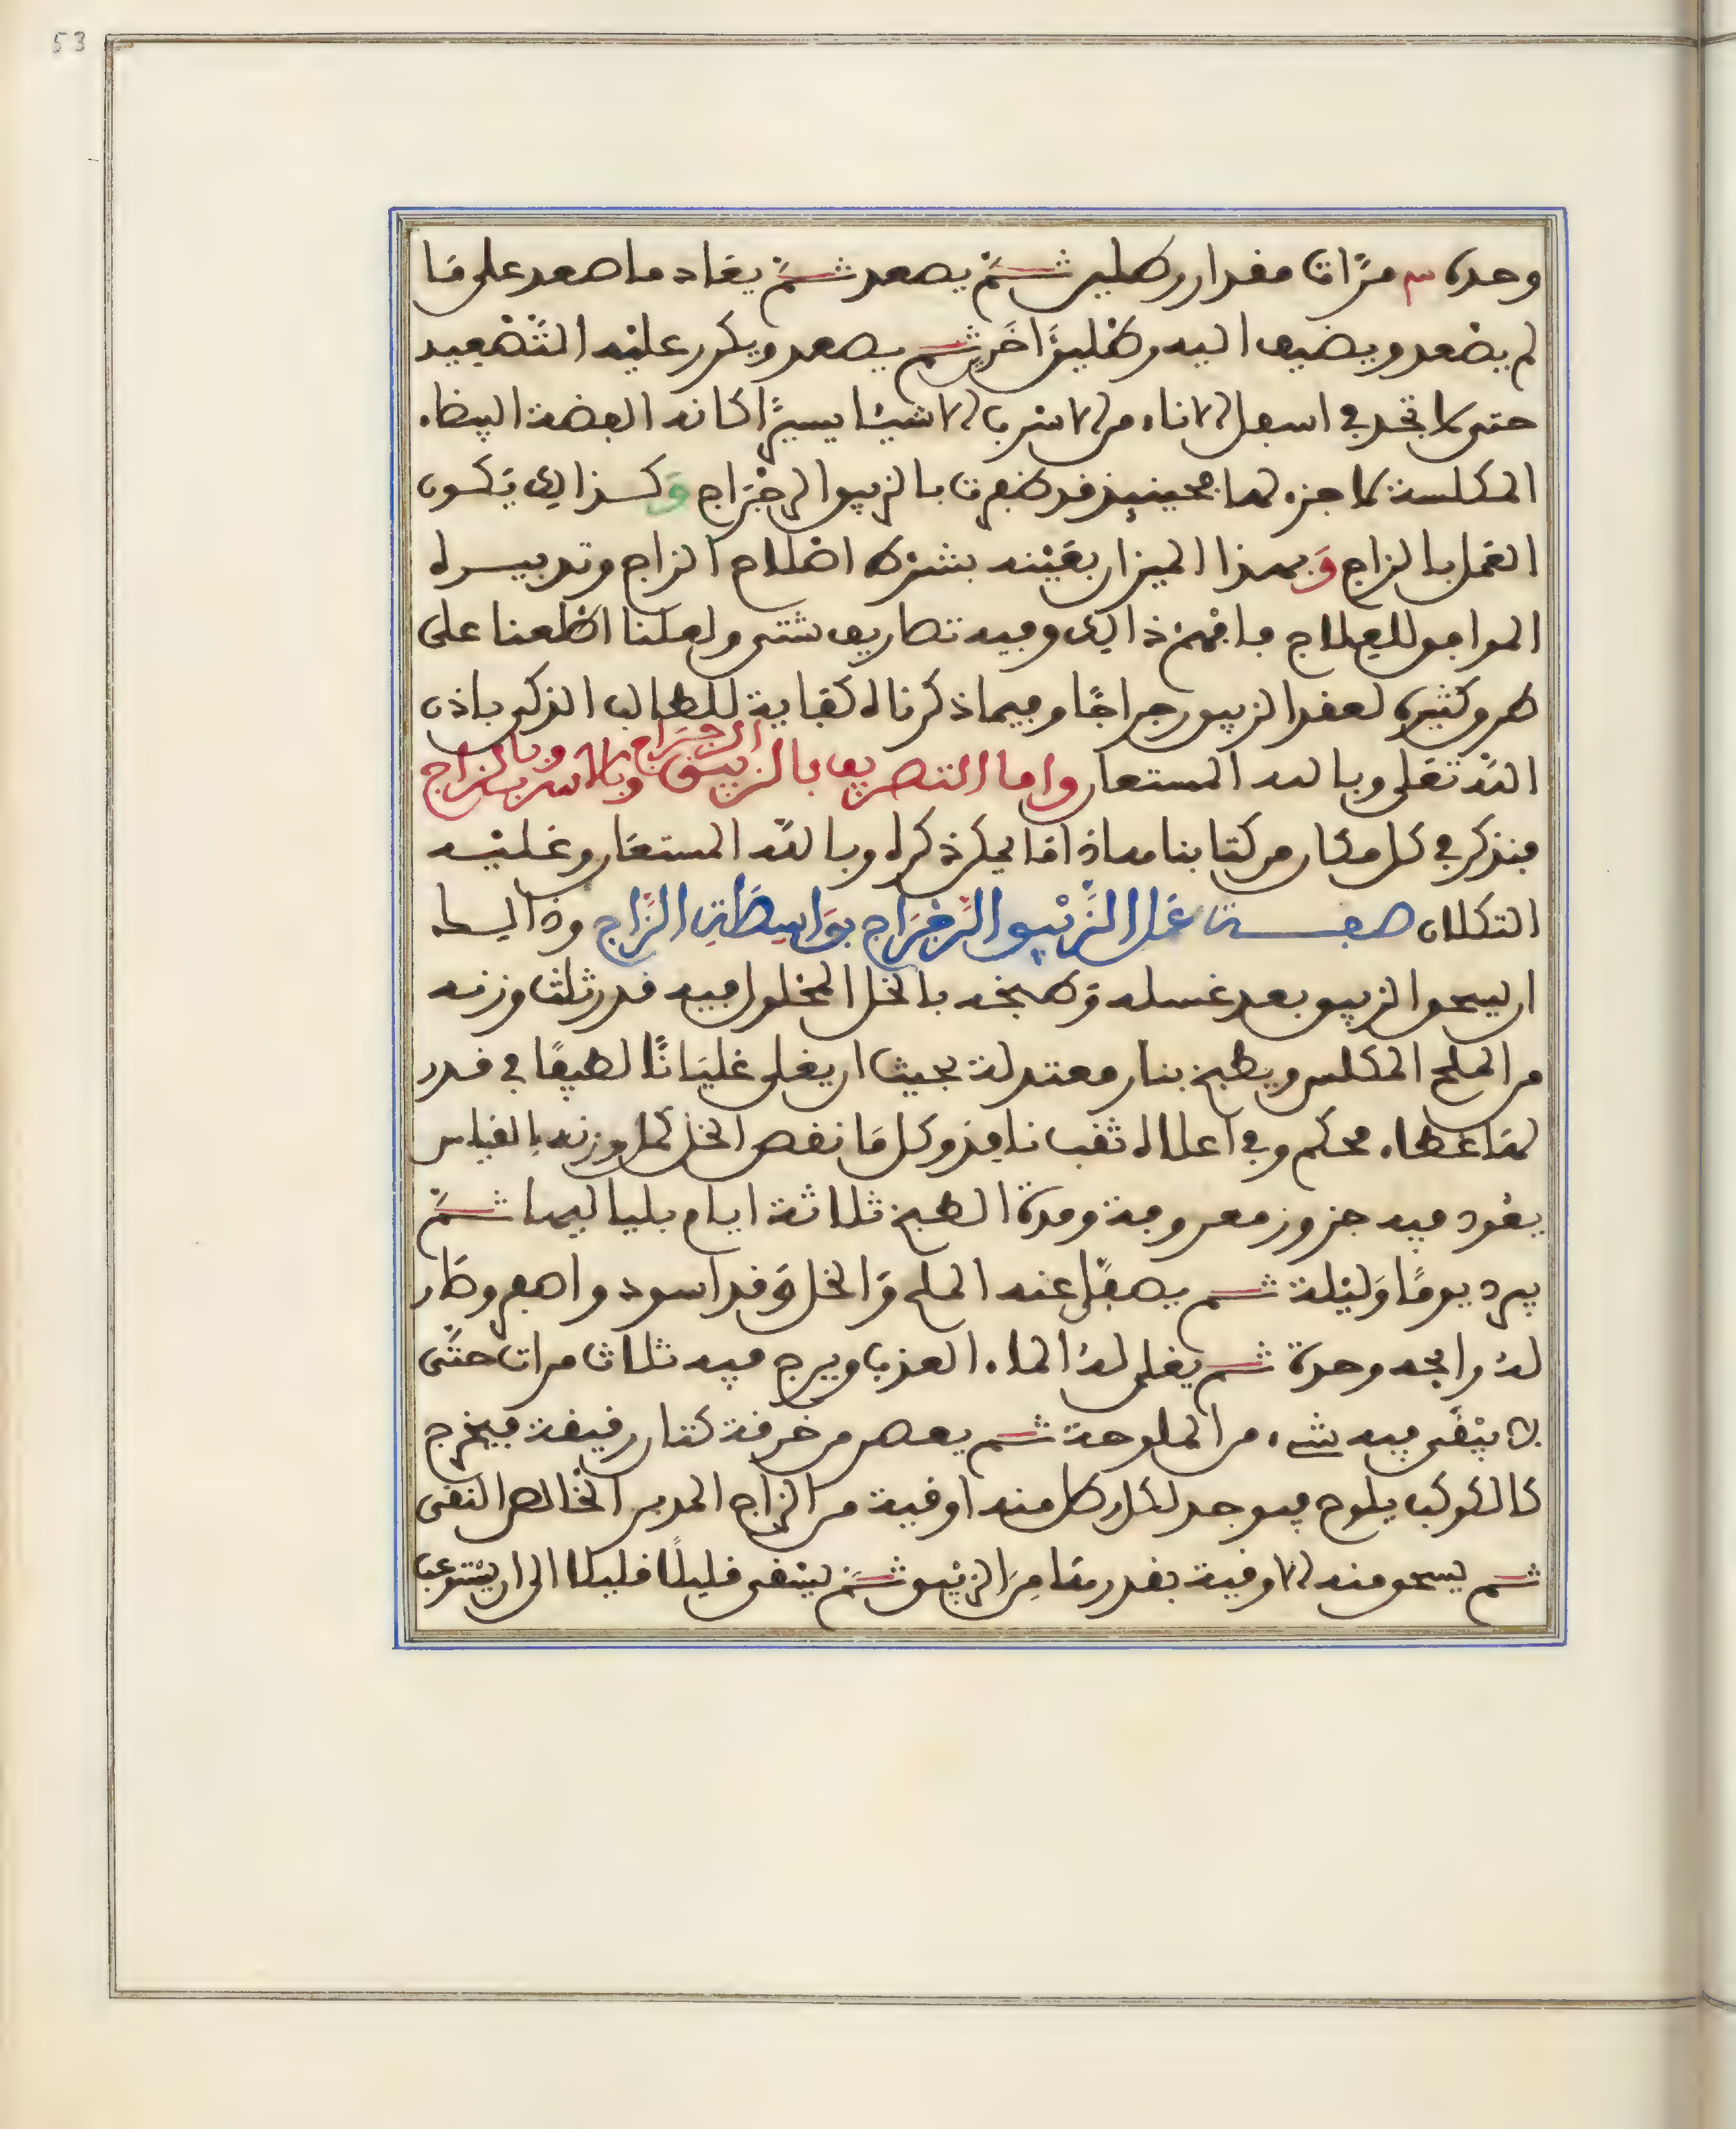 53
وحده س مرات مقدار رطلين ثم يصعد ثم يعاد ما صعد على ما
لم يصعد ويضيف اليه رطلين اخرين ثم يصعد ويكرر عليه التصعيد
حتى لا تجد في اسفل الاناء من الاسرب الا شيئا يسيرا كانه الفضة البيضاء
المكلسة لا جزء لها فحينيذ قد ظفرت بالزيبق الرجراج وكذالك تكون
العمل بالزاج وبهذا الميزان بعينه بشرط اصلاح الزاج وتدبيره
الموافق للعلاج فافهم ذالك وفيه تصاريف شتى ولعلنا اطلعنا على
طرو كثيرة لعقد الزيبق رجراجا وفيما ذكرناه كفاية للطالب الذكي باذن
الله تعلى وبالله المستعان واما التصريف بالزيبق الرجراج وبالاسرب وبالزاج
فنذكر في كل مكان من كتابنا هذا ما يمكن ذكره وبالله المستعان وعليه
التكلان صفت عمل الزيبق الرجراج بواسطة الزاج وذالك
ان يسحق الزيبق بعد غسله وطبخه بالخل المحلول فيه قدر ثلث وزنه
من الملح المكلس ويطبخ بنار معتدلة بحيث ان يغلى غليانا لطيفا في قدر
لها غطاء محكم وفي اعلاه ثقب نافذ وكل ما نقص الخل كمل وزنه بالقياس
يعود فيه جزوز معروفة ومدة الطبخ ثلاثة ايام بلياليها ثم
يبرد يوما وليلة ثم يصفى عنه الملح والخل وقد اسود واصفر وصار
له رايحه وحدة ثم يغلى له الماء العذب ويرج فيه ثلاث مرات حتى
لا يبقى فيه شيء من الملوحة ثم يعصر من خرقة كتان رقيقة فيخرج
كالكوكب يلوح فيوجد لكل رطل منه اوقية من الزاج المدبر الخالص النقى
ثم يسحق منه الاوقية بقدر مقا من الزيبق ثم يسقى قليلا قليلا الى ان يستوعب